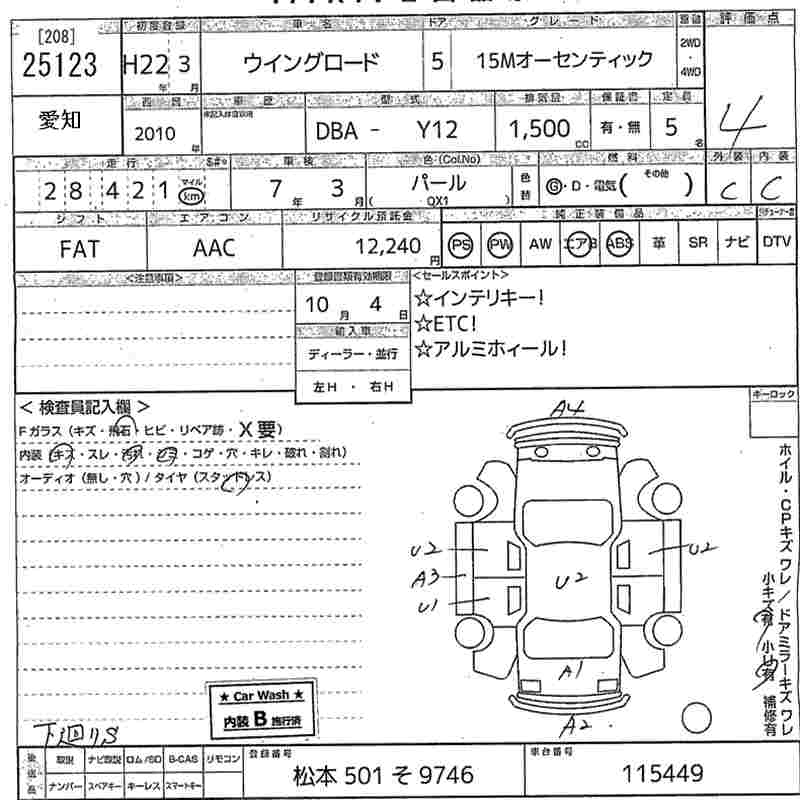 [208]
25123
初度登録
H22 3
年 月
車名
ウイングロード
ドア
5
グレード
15Mオーセンティック
2WD
・
4WD
評価点
4
愛知
2010
年
車歴
型式
DBA - Y12
排気量
1,500
cc
保証書
有・無
定員
5
名
走行
28421
マイル
km
車検
7 年 3 月
色(Col.No)
パール
( QX1 )
色替
燃料
G・D・電気( その他 )
外装
C
内装
C
シフト
FAT
エアコン
AAC
リサイクル預託金
12,240 円
純正装備品
PS PW AW エアB ABS 革 SR ナビ DTV
<注意事項>
登録書類有効期限
10 月 4 日
輸入車
ディーラー・並行
左H ・ 右H
<セールスポイント>
☆インテリキー!
☆ETC!
☆アルミホィール!
< 検査員記入欄 >
Fガラス(キズ・飛石・ヒビ・リペア跡・X要)
内装(キズ・スレ・汚れ・シミ・コゲ・穴・キレ・破れ・割れ)
オーディオ(無し・穴)/タイヤ(スタッドレス)
キーロック
A4
U2
A3
U1
U2
U2
A1
A2
ホイル・CPキズ ワレ/ドアミラーキズ ワレ
小キズ有 小凹有 補修有
★ Car Wash ★
内装 B 施行済
下廻りS
後送品
取説 ナビ取説 ロム/SD B-CAS リモコン
ナンバー スペアキー キーレス スマートキー
登録番号
松本 501 そ 9746
車台番号
115449